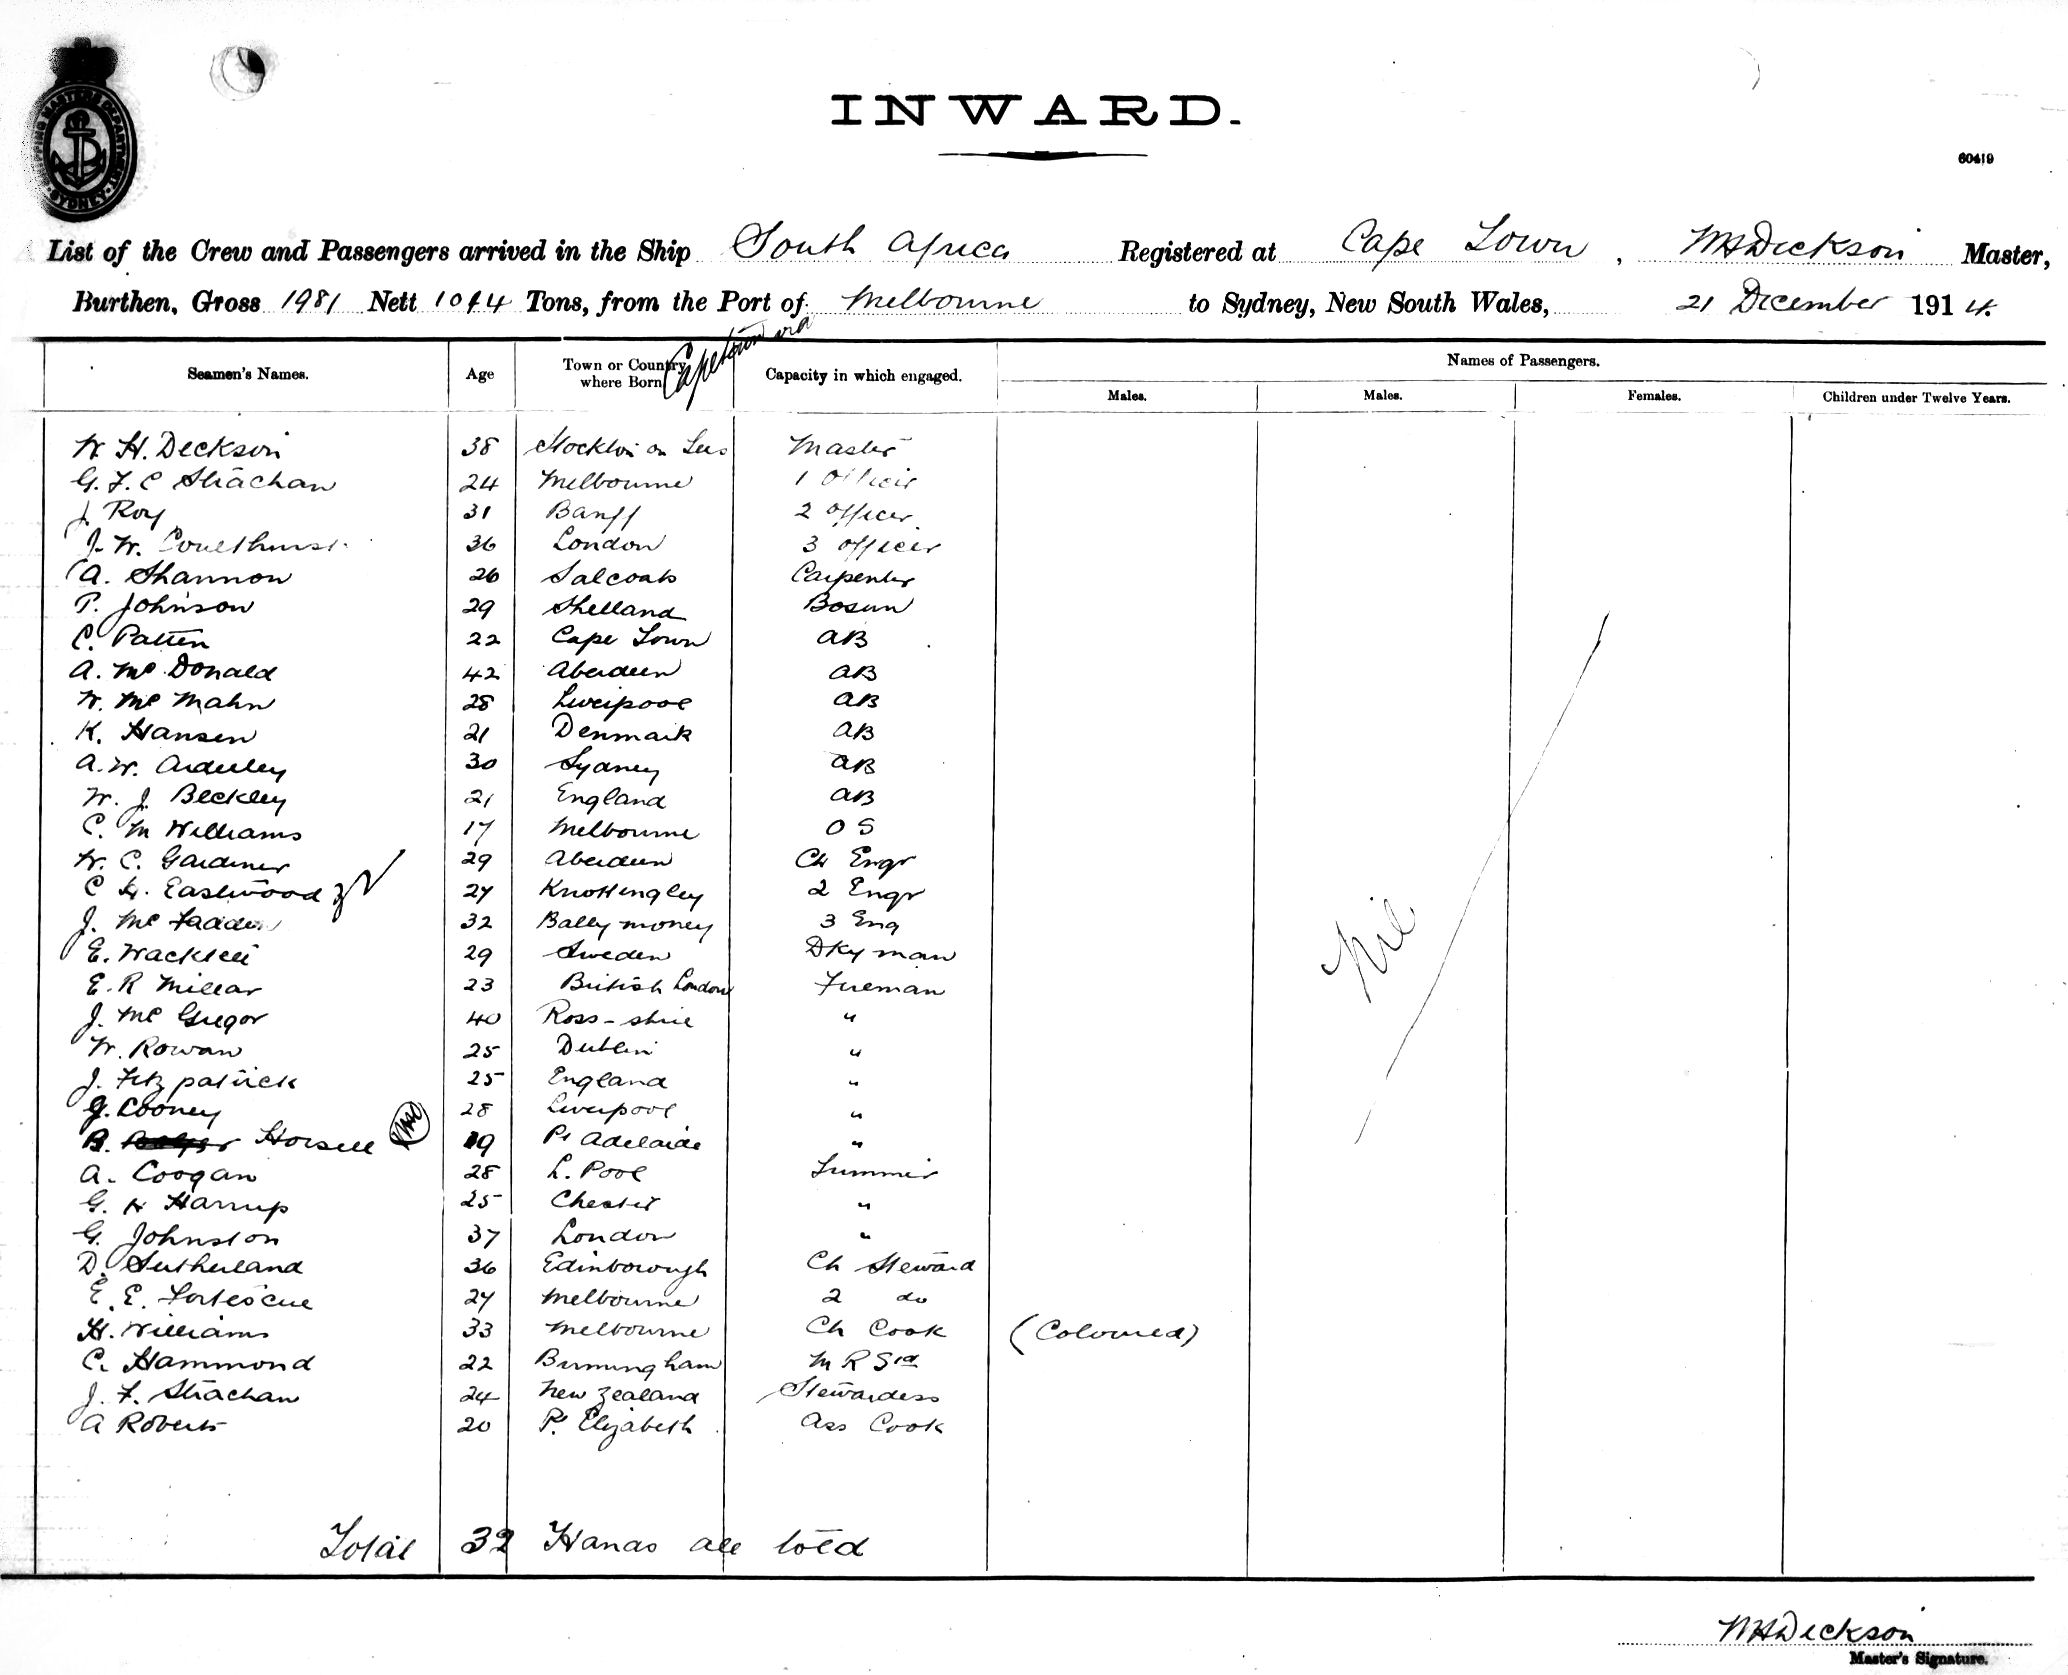 SHIPPING MASTERS DEPARTMENT SYDNEY
INWARD.
60419
List of the Crew and Passengers arrived in the Ship South Africa Registered at Cape Town, WHDickson Master,
Burthen, Gross 1981 Nett 1044 Tons, from the Port of Melbourne to Sydney, New South Wales, 21 December 1914.
Capetown via
Seamen's Names. Age Town or Country where Born Capacity in which engaged. Names of Passengers.
Males. Males. Females. Children under Twelve Years.
W. H. Dickson 38 Stockton on Tees Master
G. F. C Strachan 24 Melbourne 1 Officer
J. Roy 31 Banff 2 Officer
J. W. Coulthurst 36 London 3 Officer
A. Shannon 26 Salcoats Carpenter
P. Johnson 29 Shetland Bosun
C. Patten 22 Cape Town AB
A. Mc Donald 42 Aberdeen AB
W. Mc Mahn 28 Liverpool AB
K. Hansen 21 Denmark AB
A. W. Arderley 30 Sydney AB
W. J. Beckley 21 England AB
C. M Williams 17 Melbourne OS
W. C. Gardiner 29 Aberdeen Ch Engr
C H. Eastwood 27 Knottingley 2 Engr
J. Mc Fadden 32 Bally money 3 Eng
E. 29 Sweden Dky man
E. R Millar 23 British London Fireman
J. Mc Gregor 40 Ross-shire "
W. Rowan 25 Dublin "
J. Fitzpatrick 25 England "
J. Cooney 28 Liverpool "
B. Horsell 19 Pt Adelaide "
A. Coogan 28 L. Pool Trimmer
G. H Harrup 25 Chester "
G. Johnston 37 London "
D. Sutherland 36 Edinborough Ch Steward
E. E. Fortescue 27 Melbourne 2 do
H. Williams 33 Melbourne Ch Cook (Coloured)
C. Hammond 22 Birmingham M R Std
J. F. Strachan 24 New Zealand Stewardess
A Roberts 20 Pt Elizabeth Ass Cook
Nil
Total 32 Hands all told
WHDickson
Master's Signature.